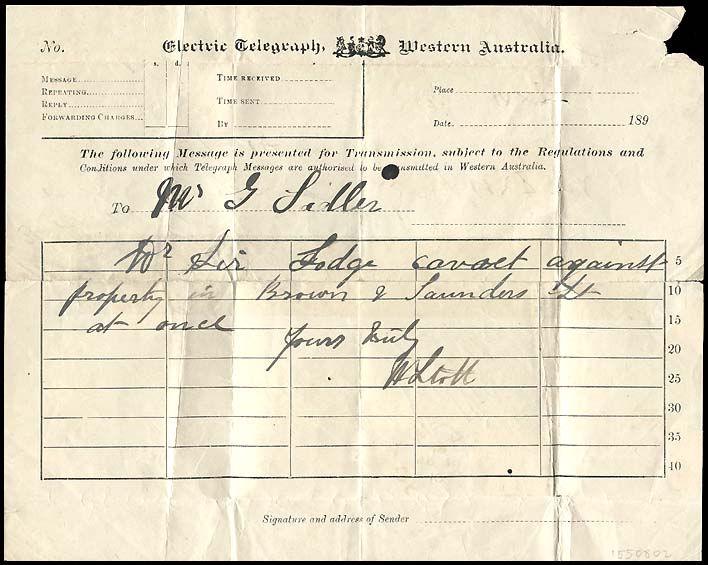 No. Electric Telegraph, Western Australia.
s. d.
MESSAGE
REPEATING
REPLY
FORWARDING CHARGES
TIME RECEIVED
TIME SENT
BY
Place
Date 189
The following Message is presented for Transmission, subject to the Regulations and
Conditions under which Telegraph Messages are authorised to be transmitted in Western Australia.
To Mr G Sidler
Dr Sir Lodge cavaet against 5
property in Brown & Saunders St 10
at once 15
Yours truly 20
W Stott 25
30
35
40
Signature and address of Sender
1550802